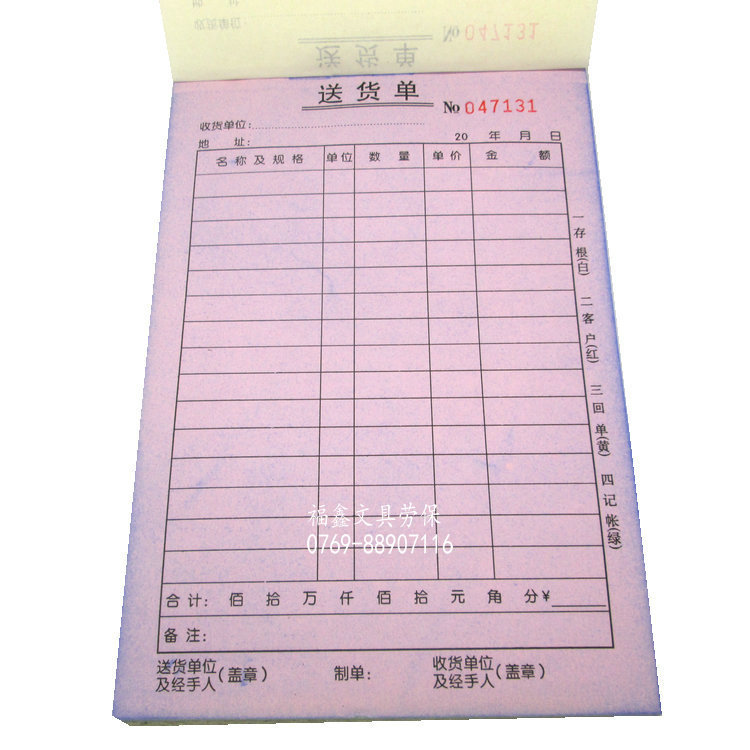 地 址:
收货单位:
送货单 № 047131
送货单
№ 047131
收货单位:
地 址: 20 年 月 日
名称及规格 单位 数 量 单价 金 额
一存根(白) 二客户(红) 三回单(黄) 四记帐(绿)
福鑫文具劳保
0769-88907116
合计: 佰 拾 万 仟 佰 拾 元 角 分 ¥
备注:
送货单位及经手人(盖章) 制单: 收货单位及经手人(盖章)